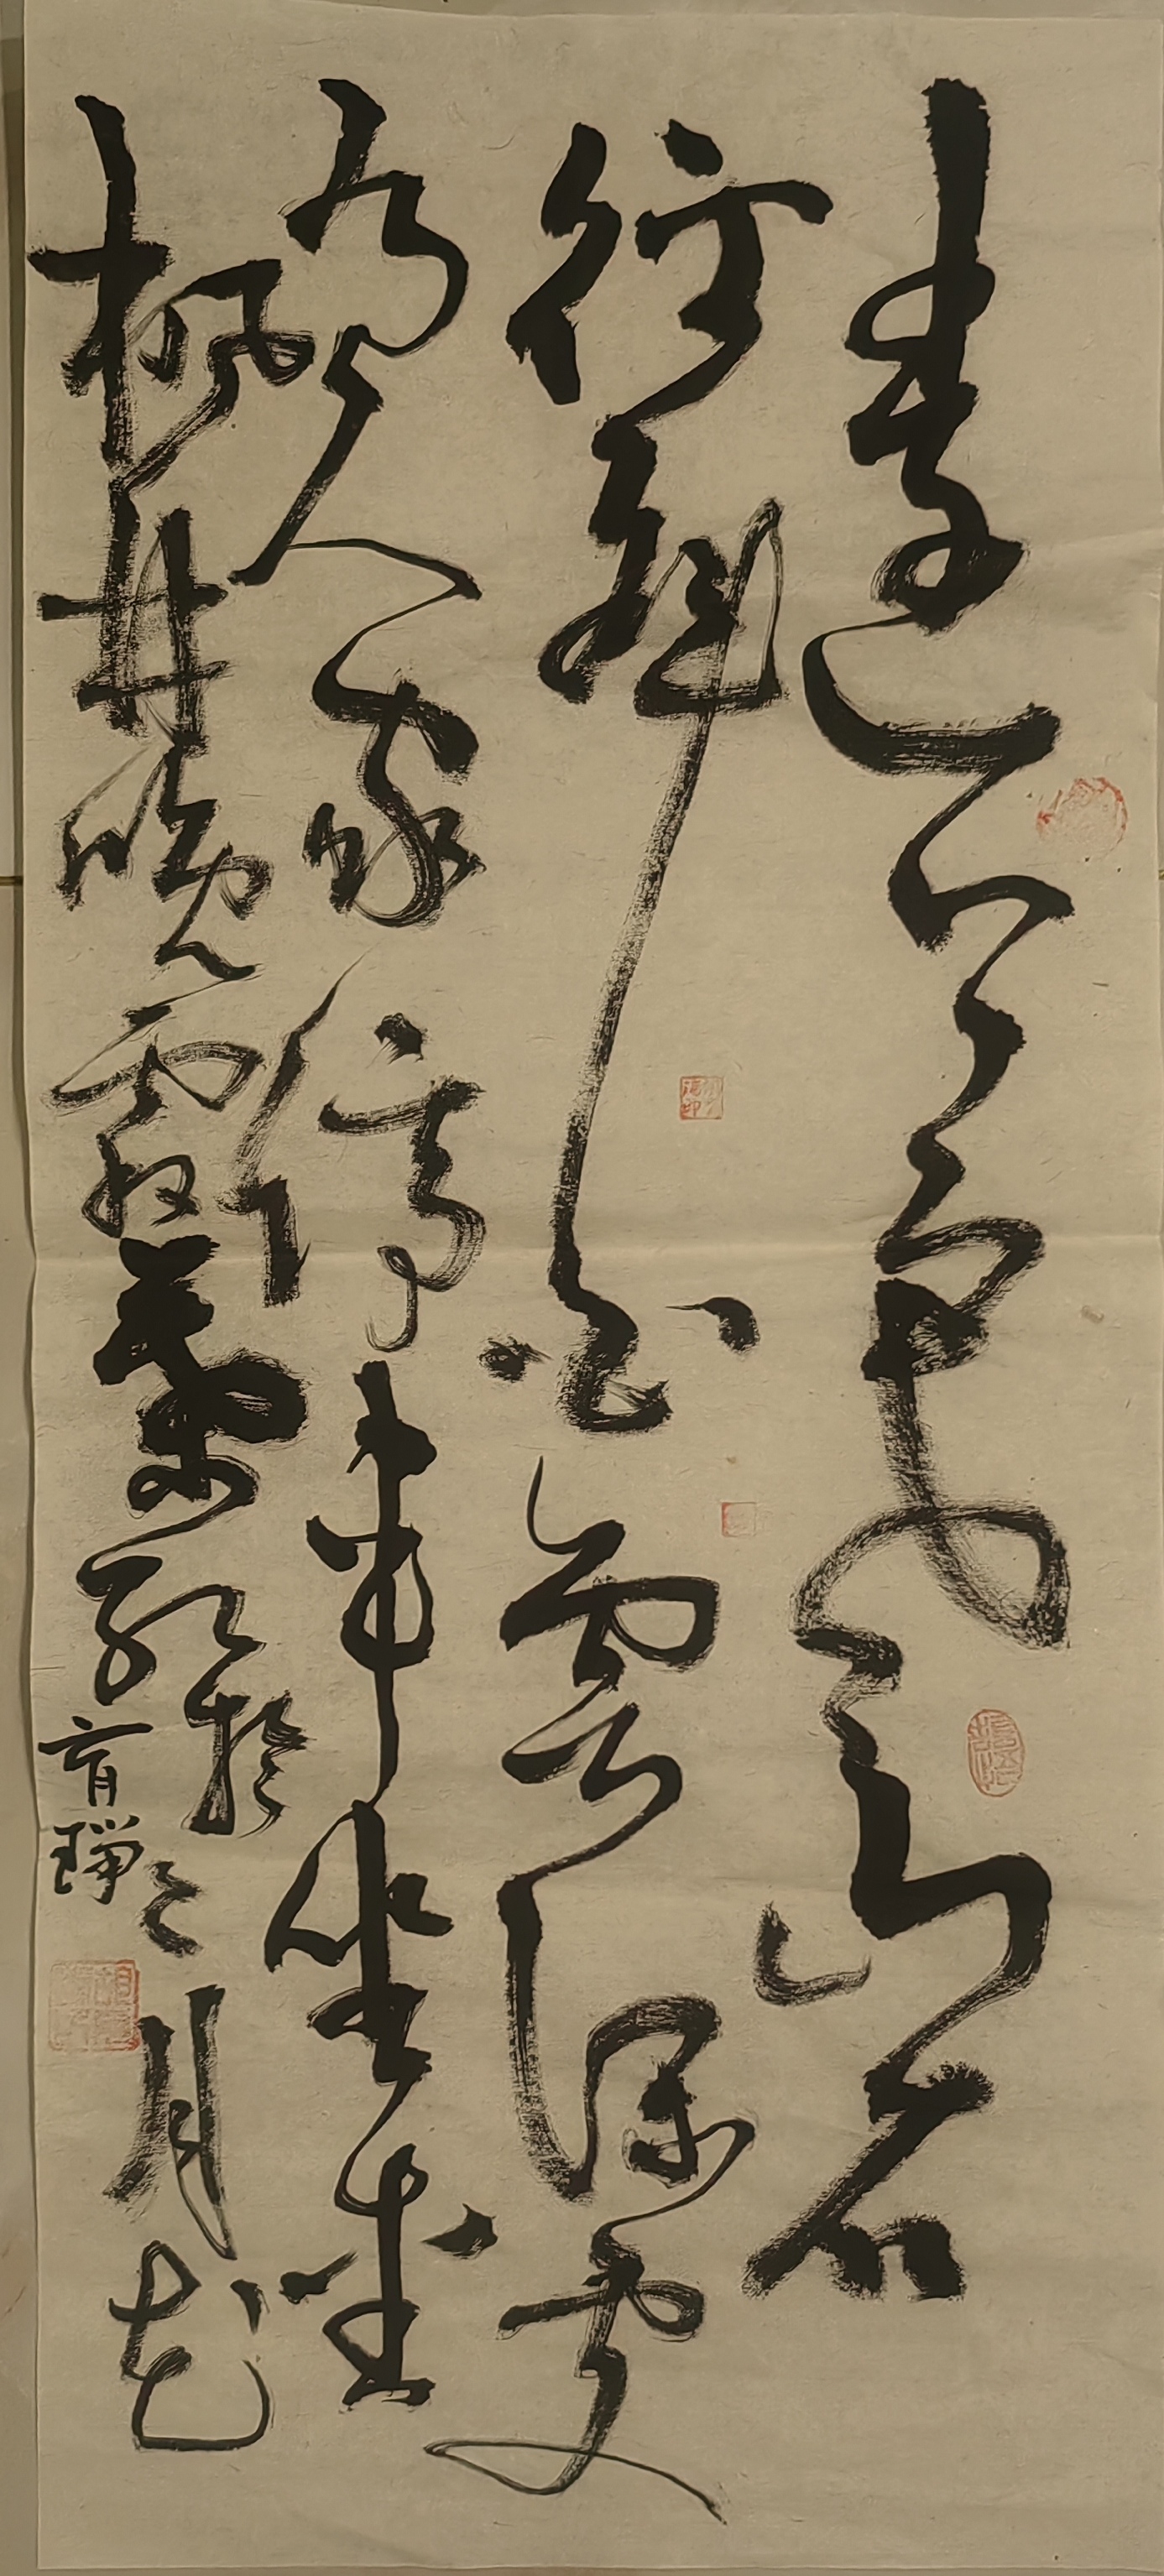 遠上寒山石
徑斜白雲深處
有人家停車坐愛
楓林晚霜葉紅於二月花